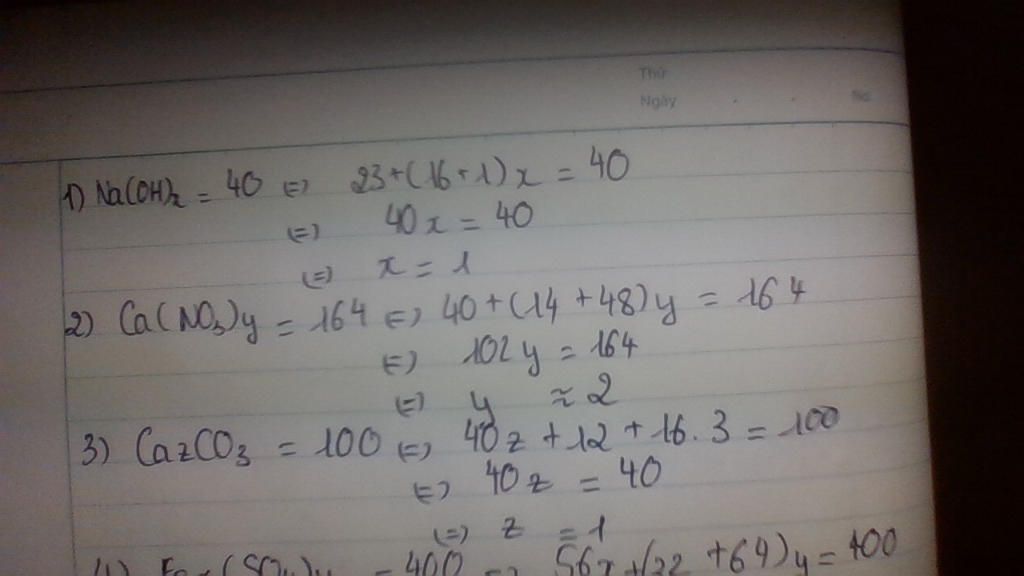 Thứ
Ngày
No
1) Na(OH)x = 40 (=) 23+(16+1)x = 40
(=) 40x = 40
(=) x = 1
2) Ca(NO3)y = 164 (=) 40+(14+48)y = 164
(=) 102y = 164
(=) y ≈ 2
3) CazCO3 = 100 (=) 40z + 12 + 16.3 = 100
(=) 40z = 40
(=) z = 1
4) Fex(SO4)y = 400 (=) 56x+(32+64)y = 400